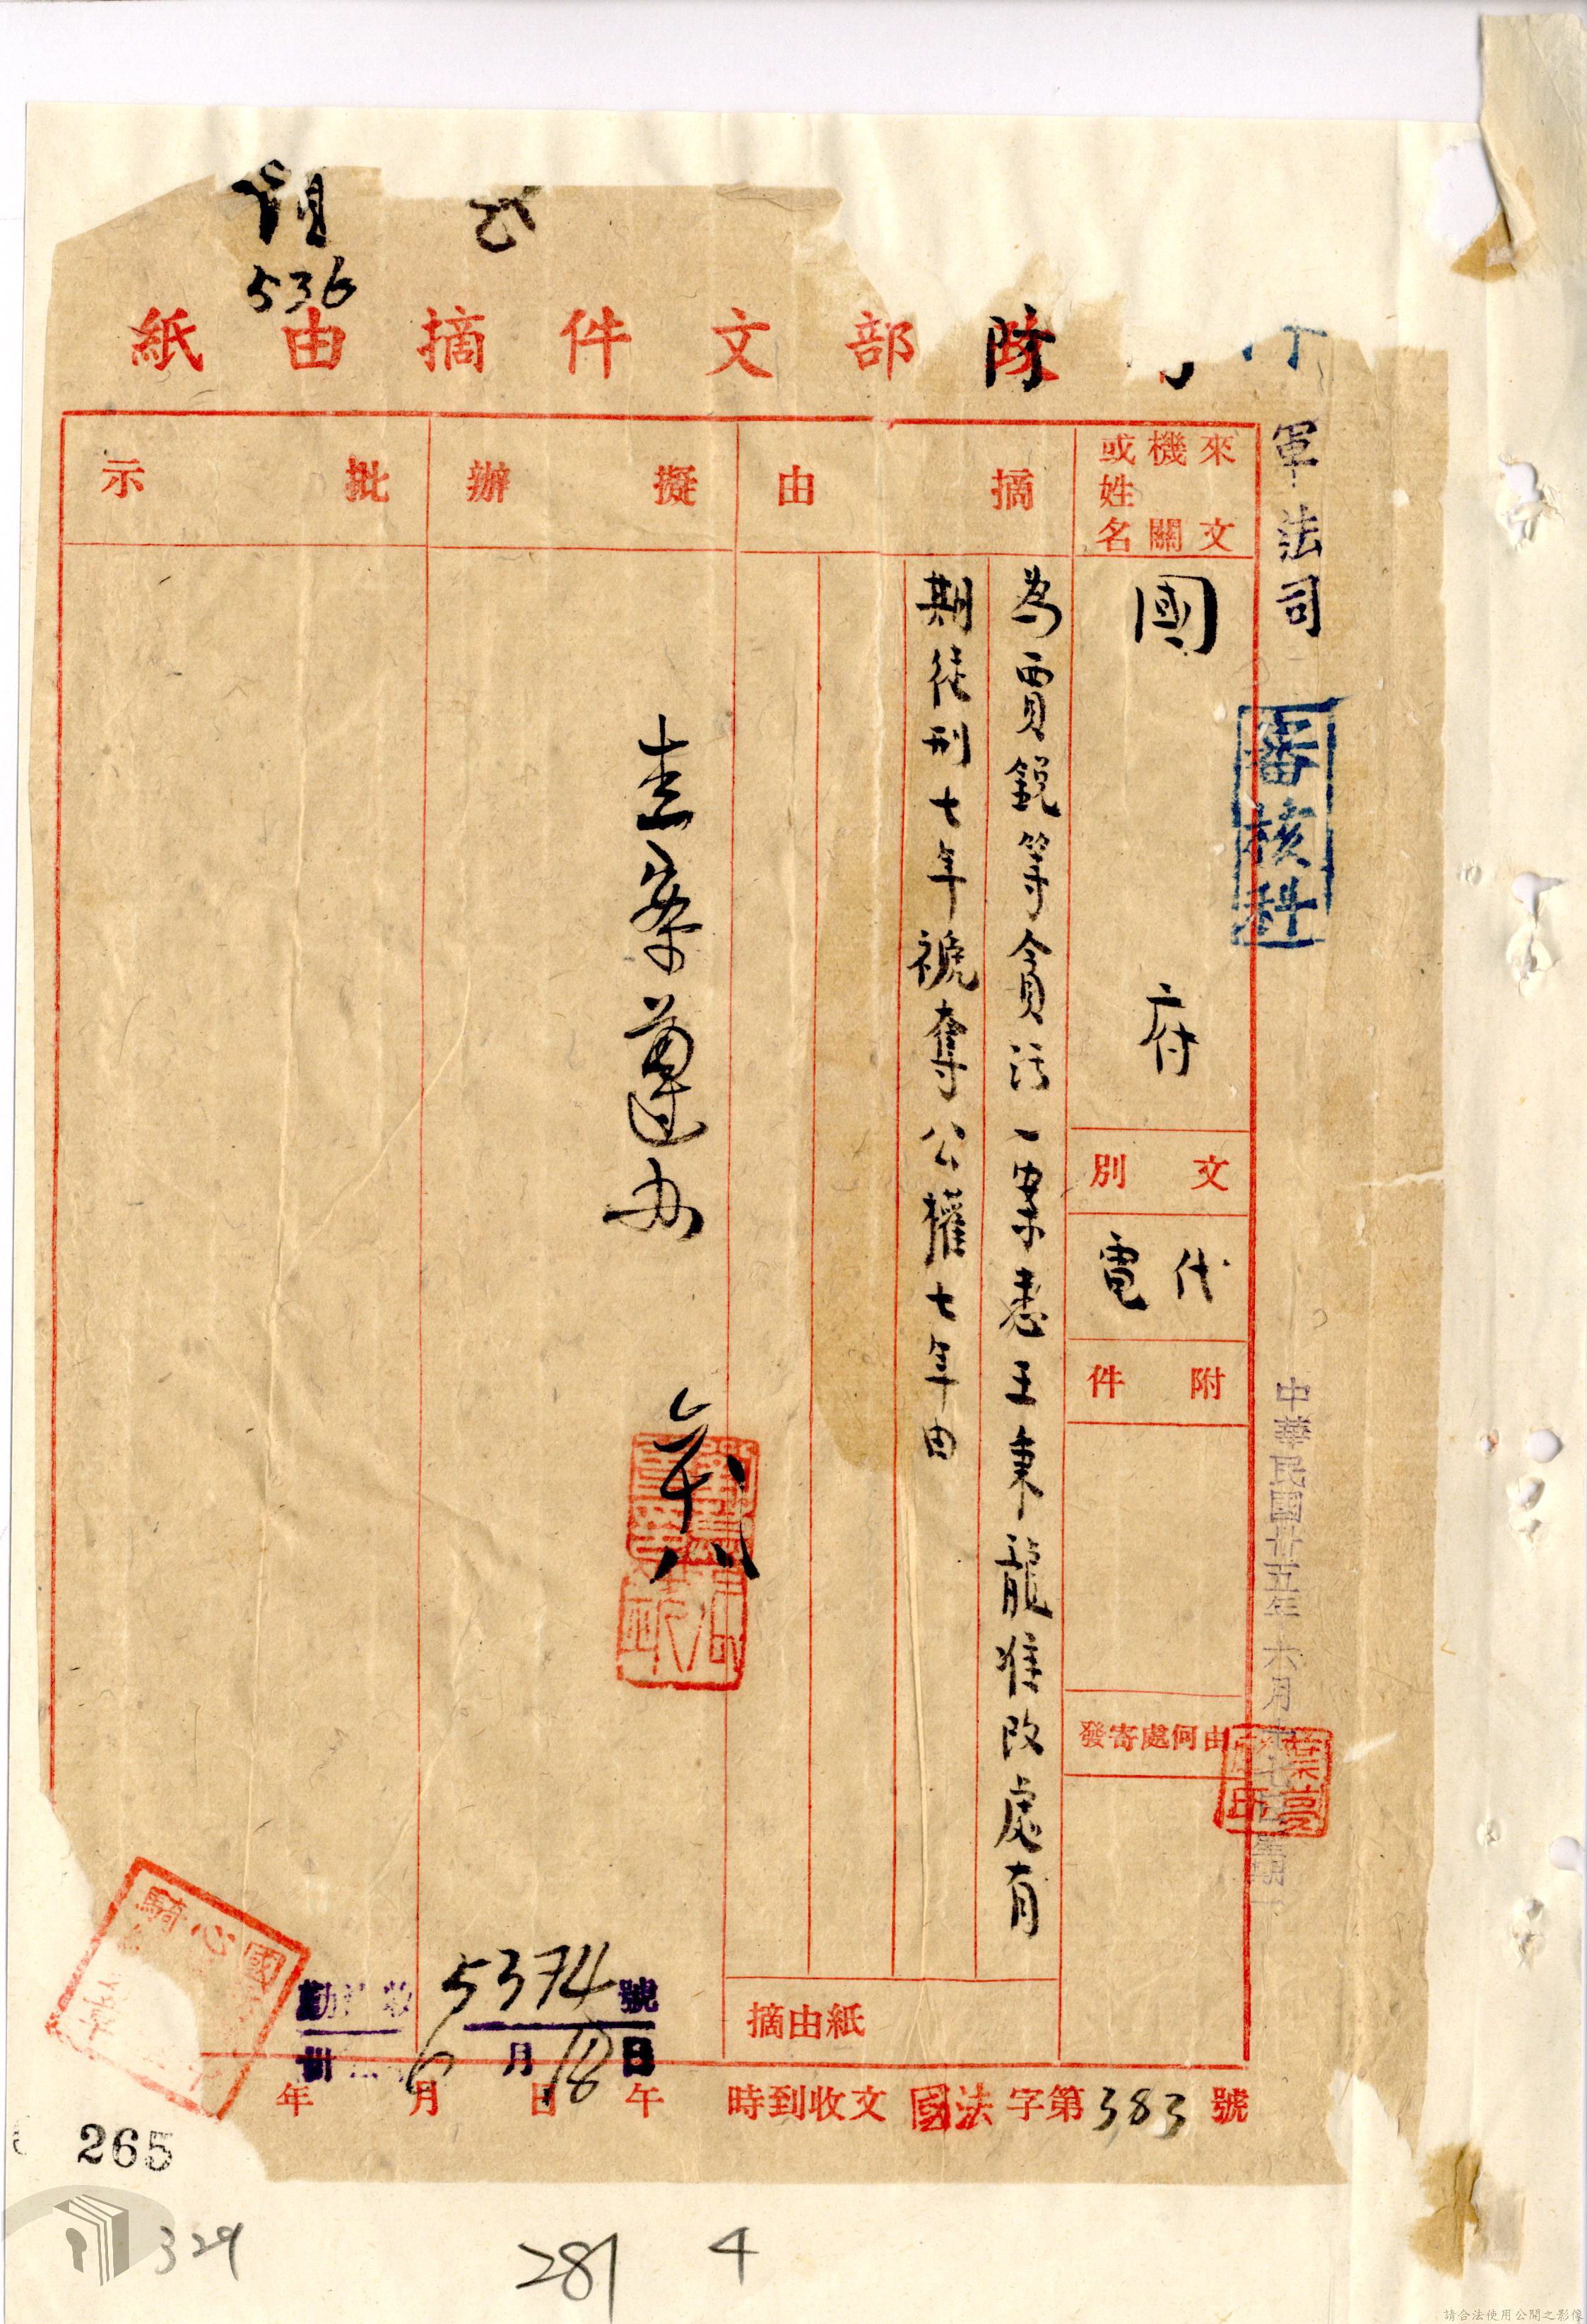 536
防部文件摘由紙
軍法司
審核科
中華民國卅五年六月十七日星期
來文機關或姓名
國府
文別
代電
附件
由何處寄發
摘由
為賈鏡等貪污一案悉王秉龍准改處有
期徒刑七年褫奪公權七年由
擬辦
查案遵办
批示
摘由紙
5374號
6月18日
年月日午時到收文國法字第383號
265
329
281
4
請合法使用公開之影像